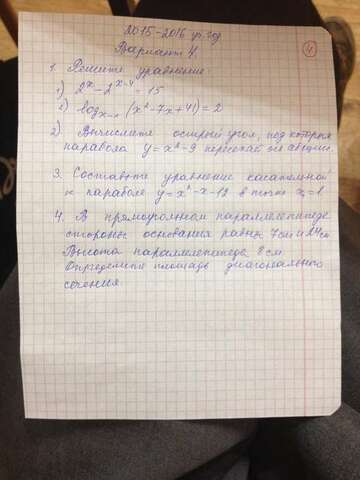 2015-2016 уч.год
Вариант 4.
4
1. Решите уравнение:
1) 2^x - 2^(x-4) = 15
2) log_(x-1) (x²-7x+41) = 2
2) Вычислите острый угол, под которым
парабола y = x²-9 пересекает ось абсцисс.
3. Составьте уравнение касательной
к параболе y = x²-x-12 в точке x₀=1
4. В прямоугольном параллелепипеде
стороны основания равны 7см и 24см
Высота параллелепипеда 8 см
Определите площадь диагонального
сечения.